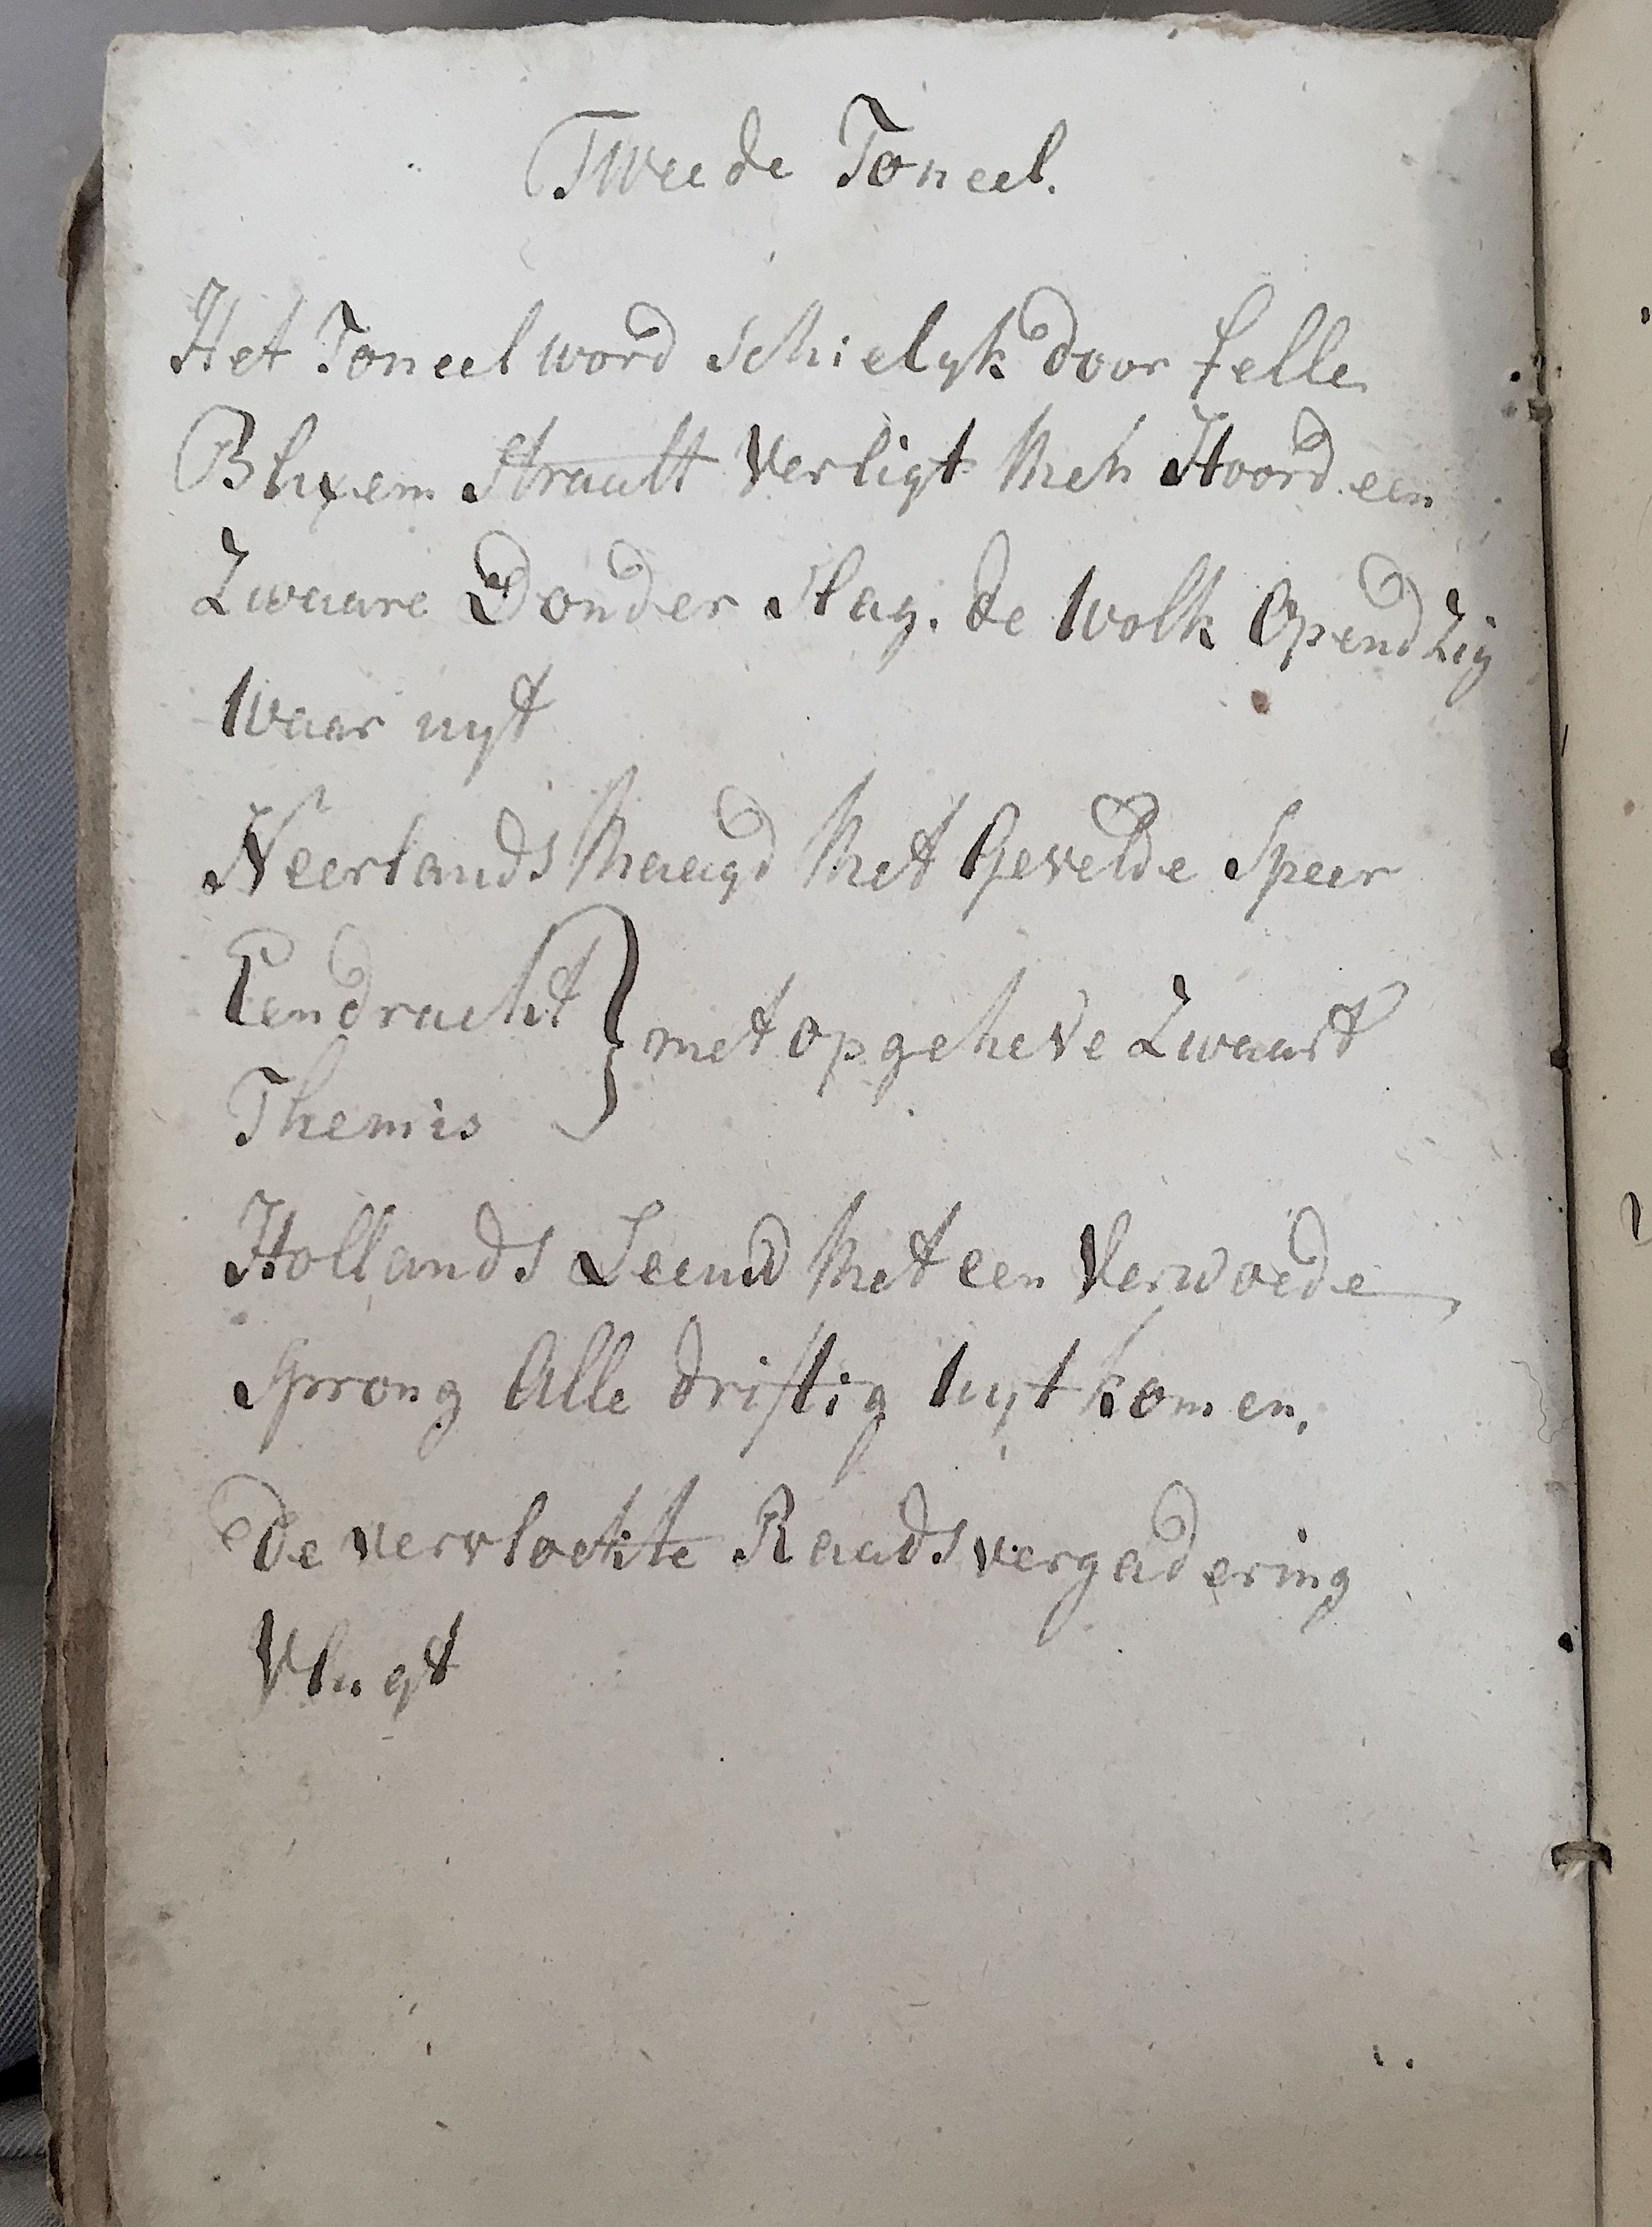 Tweede Toneel.
Het Toneel word schielyk door felle
Blixem straalt Verligt Men Hoord een
Zwaare Donder slag. de Wolk Opend Zig
Waar uyt
Neerlands Maagd Met Gevelde Speer
Eendracht } met opgeheve Zwaart
Themis
Hollands Leeuw Met een Verwoede
Sprong Alle driftig Uyt komen,
De vervlockte Raadsvergadering
Vlugt